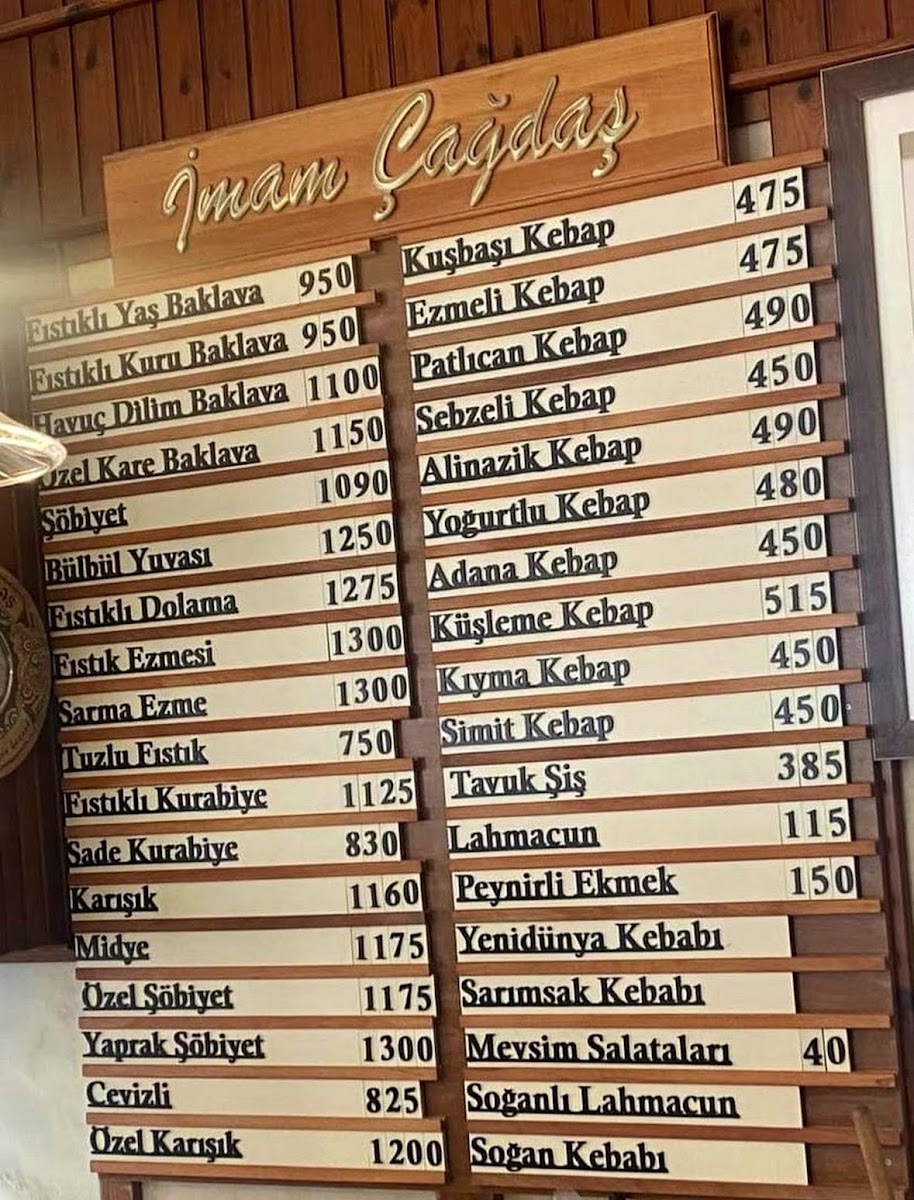 İmam Çağdaş
Fıstıklı Yaş Baklava 950
Fıstıklı Kuru Baklava 950
Havuç Dilim Baklava 1100
Özel Kare Baklava 1150
Şöbiyet 1090
Bülbül Yuvası 1250
Fıstıklı Dolama 1275
Fıstık Ezmesi 1300
Sarma Ezme 1300
Tuzlu Fıstık 750
Fıstıklı Kurabiye 1125
Sade Kurabiye 830
Karışık 1160
Midye 1175
Özel Şöbiyet 1175
Yaprak Şöbiyet 1300
Cevizli 825
Özel Karışık 1200
Kuşbaşı Kebap 475
Ezmeli Kebap 475
Patlıcan Kebap 490
Sebzeli Kebap 450
Alinazik Kebap 490
Yoğurtlu Kebap 480
Adana Kebap 450
Küşleme Kebap 515
Kıyma Kebap 450
Simit Kebap 450
Tavuk Şiş 385
Lahmacun 115
Peynirli Ekmek 150
Yenidünya Kebabı
Sarımsak Kebabı
Mevsim Salataları 40
Soğanlı Lahmacun
Soğan Kebabı